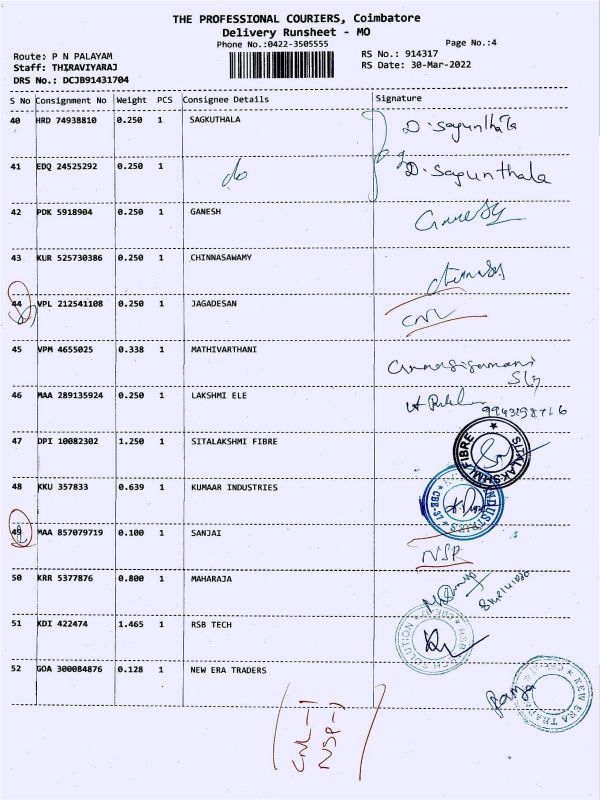 THE PROFESSIONAL COURIERS, Coimbatore
Delivery Runsheet - MO
Phone No.:0422-3505555
Page No.:4
Route: P N PALAYAM
RS No.: 914317
Staff: THIRAVIYARAJ
RS Date: 30-Mar-2022
DRS No.: DCJB91431704
S No Consignment No Weight PCS Consignee Details Signature
40 HRD 74938810 0.250 1 SAGKUTHALA D. Sagunthala
41 EDQ 24525292 0.250 1 do D. Sagunthala
42 PDK 5918904 0.250 1 GANESH Ganesh
43 KUR 525730386 0.250 1 CHINNASAWAMY
44 VPL 212541108 0.250 1 JAGADESAN CNL
45 VPM 4655025 0.338 1 MATHIVARTHANI
46 MAA 289135924 0.250 1 LAKSHMI ELE
47 DPI 10082302 1.250 1 SITALAKSHMI FIBRE SITALAKSHMI FIBRE
48 KKU 357833 0.639 1 KUMAAR INDUSTRIES INDUSTRIES
49 MAA 857079719 0.100 1 SANJAI NSP
50 KRR 5377876 0.800 1 MAHARAJA
51 KDI 422474 1.465 1 RSB TECH RSB TECH SOLUTION
52 GOA 300084876 0.128 1 NEW ERA TRADERS NEW ERA TRADERS
CNL-1
NSP-1